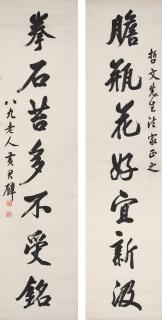 膽瓶花好宜新汲
哲文先生法家正之
拳石苔多不受銘
八九老人黃君璧